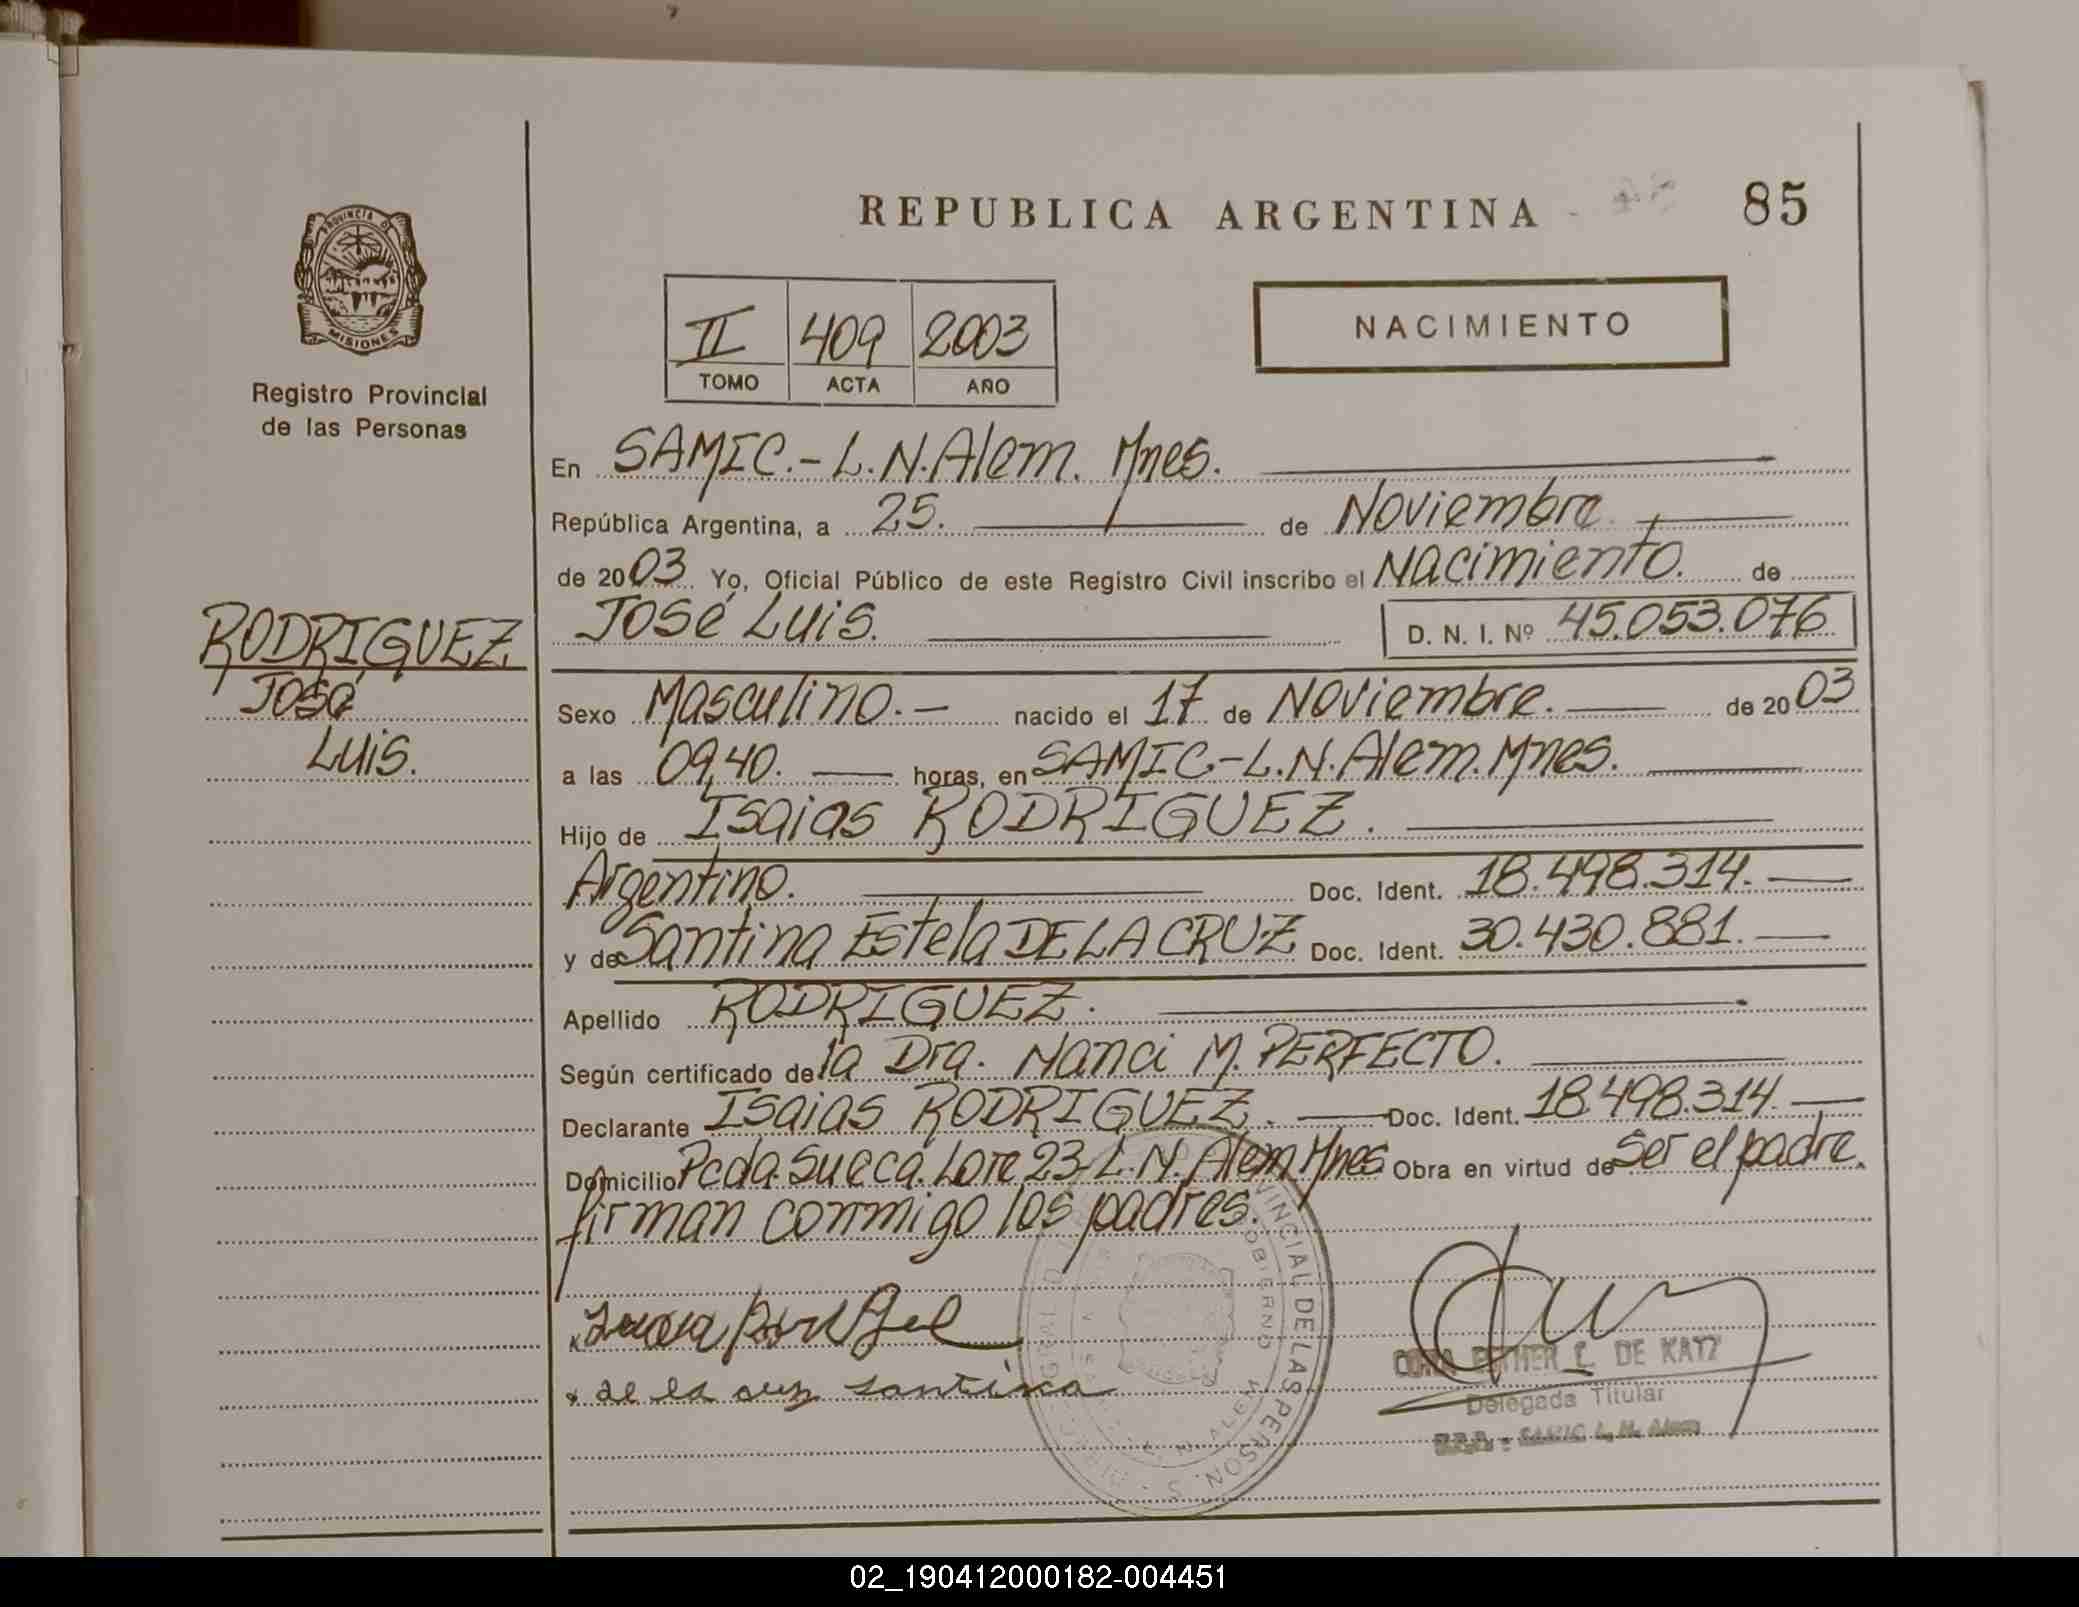 REPUBLICA ARGENTINA
85
PROVINCIA DE
MISIONES
Registro Provincial
de las Personas
II 409 2003
TOMO ACTA AÑO
NACIMIENTO
En SAMIC.-L.N.Alem. Mnes.
República Argentina, a 25. de Noviembre
de 2003 Yo, Oficial Público de este Registro Civil inscribo el Nacimiento. de
José Luis. D. N. I. Nº 45.053.076
RODRIGUEZ
José
Luis.
Sexo Masculino.- nacido el 17 de Noviembre. de 2003
a las 09,40. horas, en SAMIC-L.N.Alem.Mnes.
Hijo de Isaias RODRIGUEZ.
Argentino. Doc. Ident. 18.498.314.
y de Santina Estela DE LA CRUZ Doc. Ident. 30.430.881.
Apellido RODRIGUEZ.
Según certificado de la Dra. Nanci M. PERFECTO.
Declarante Isaias RODRIGUEZ. Doc. Ident. 18.498.314.
Domicilio Pcda. Sueca. Lote 23-L.N. Alem Mnes Obra en virtud de ser el padre.
firman conmigo los padres.
de la cruz santina
VINCIAL DE LAS PERSON. S
ESTHER C. DE KATZ
Delegada Titular
SAMIC L. N. Alem
02_190412000182-004451